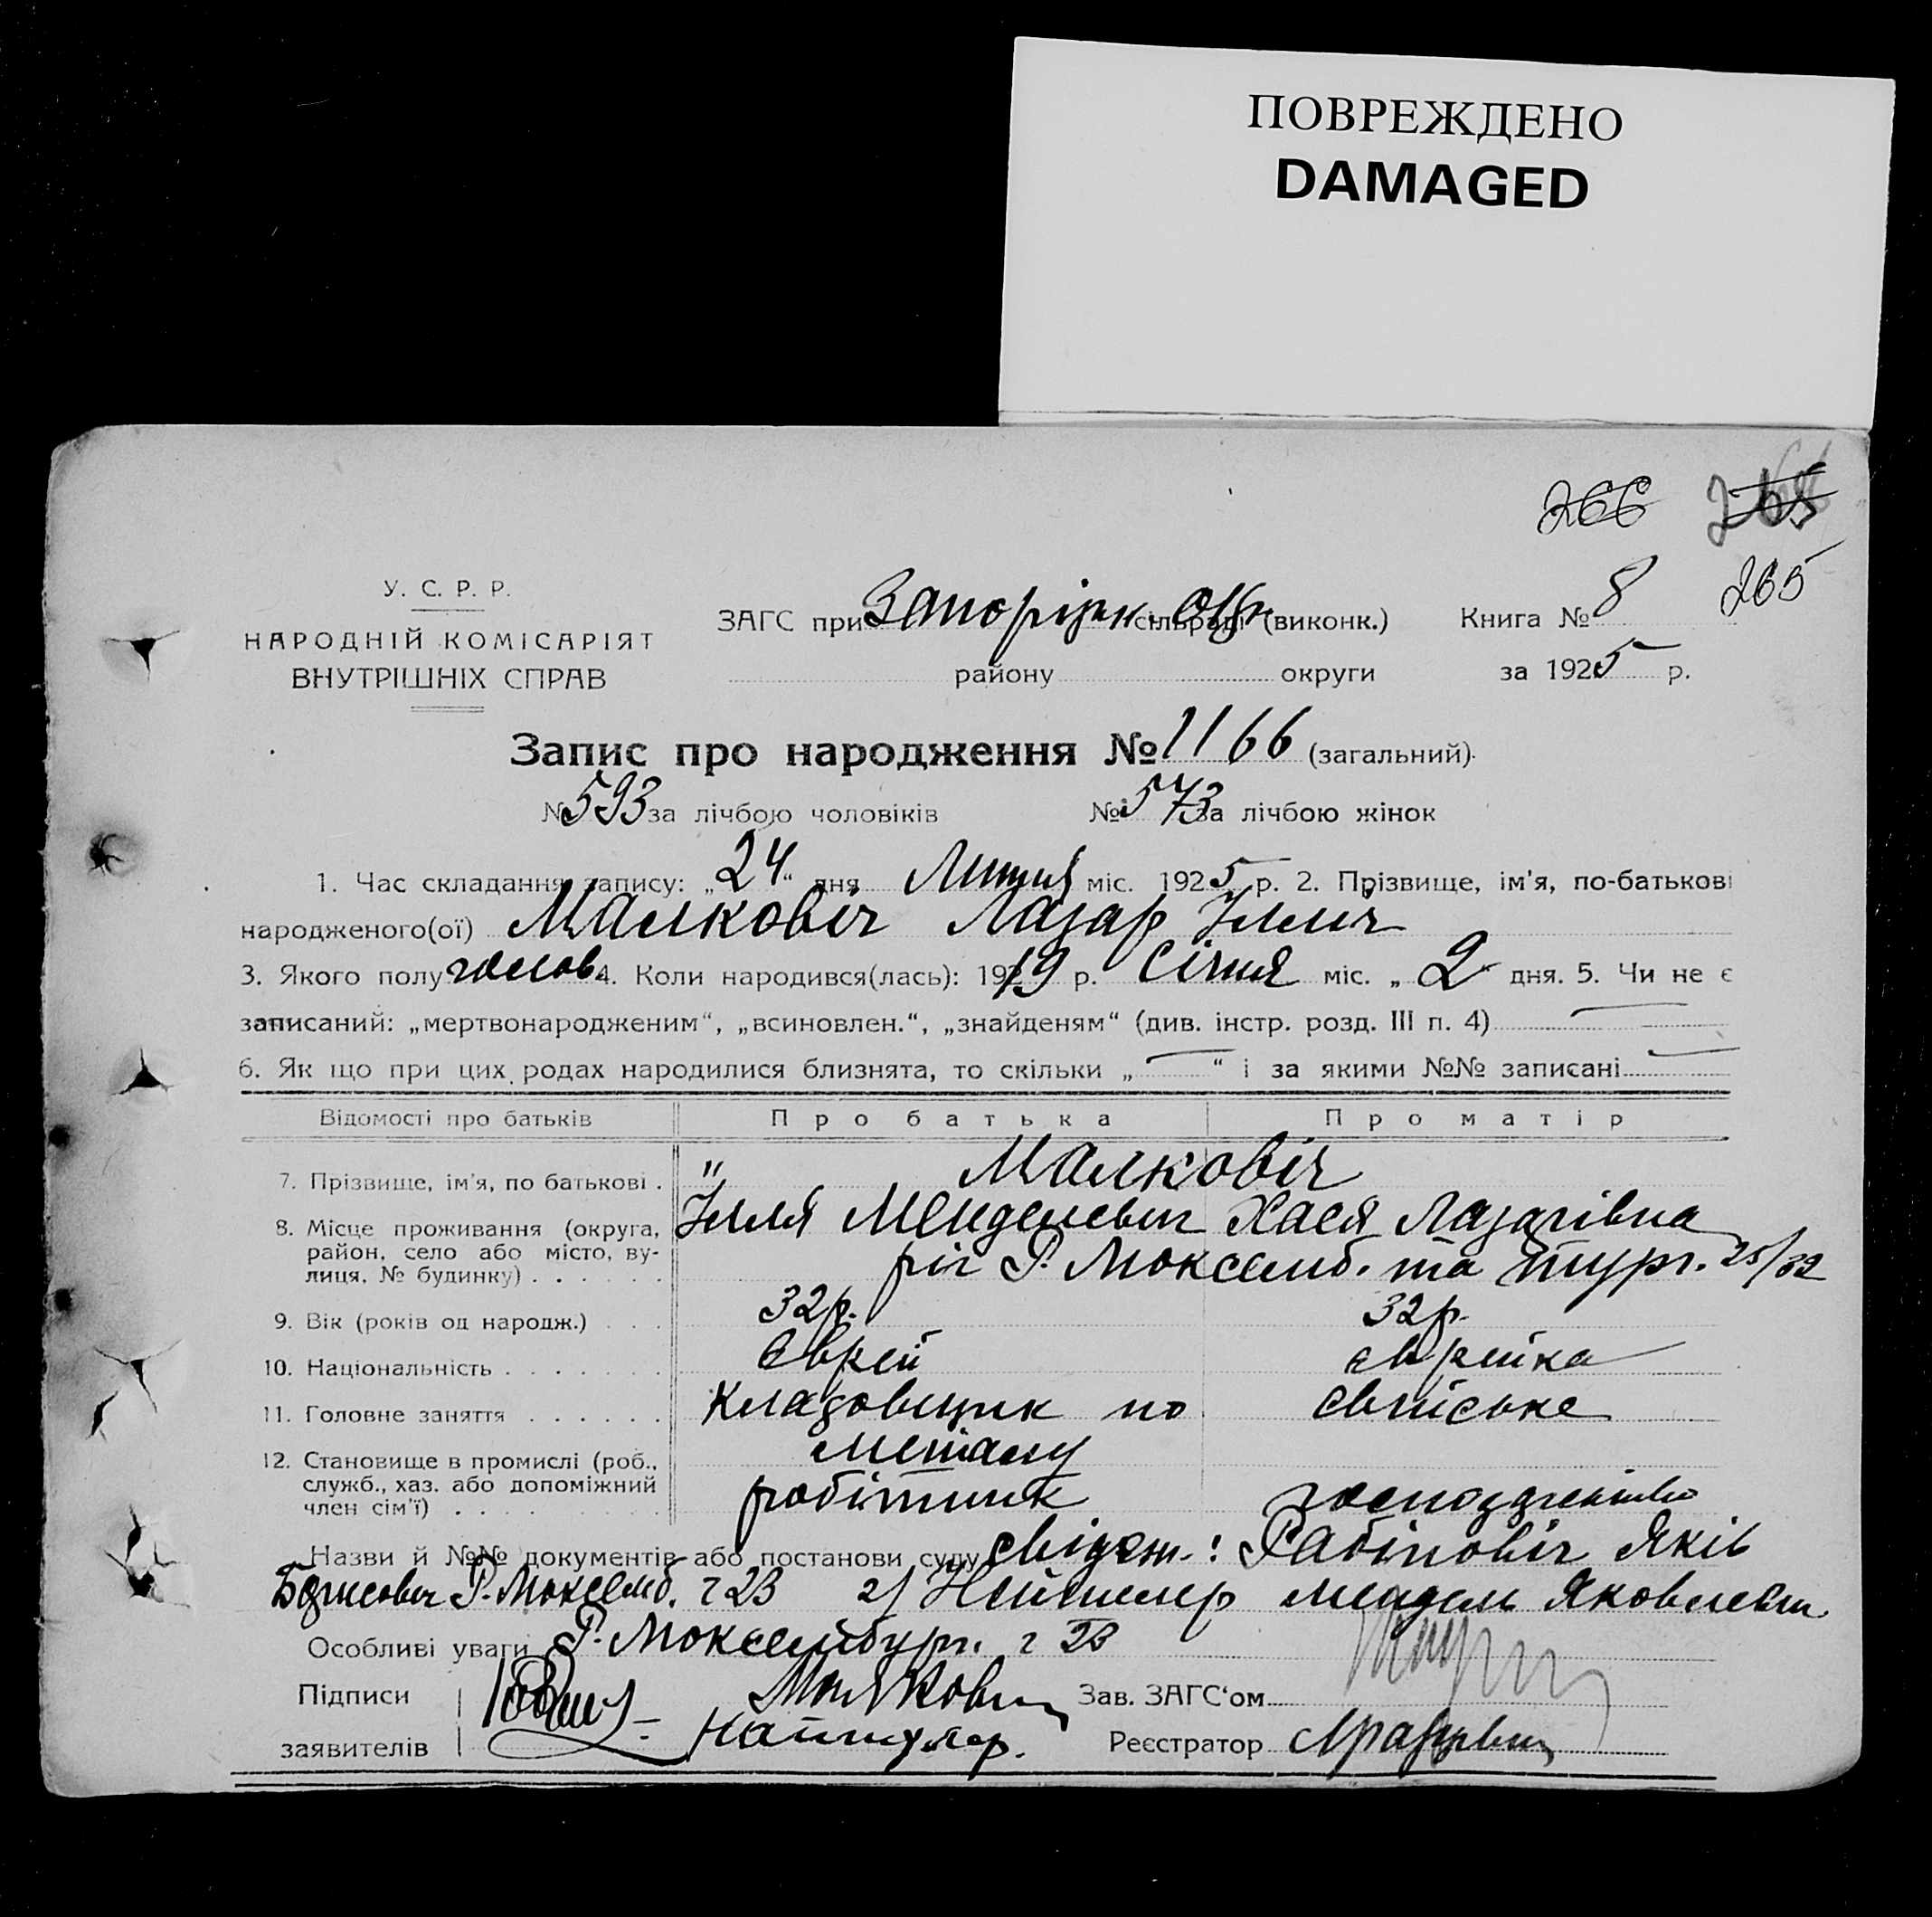 ПОВРЕЖДЕНО
DAMAGED
266 265
У. С. Р. Р.
НАРОДНІЙ КОМІСАРІЯТ
ВНУТРІШНІХ СПРАВ
ЗАГС при Запорізьк. сільраді (виконк.) Книга № 8 265
району округи за 1925 р.
Запис про народження № 1166 (загальний)
№ 593 за лічбою чоловіків № 573 за лічбою жінок
1. Час складання запису: „24“ дня Липня міс. 1925 р. 2. Прізвище, ім'я, по-батькові
народженого(ої) Малковіч Лазар Ілліч
3. Якого полу чолов. 4. Коли народився(лась): 1919 р. Січня міс. „2“ дня. 5. Чи не є
записаний: „мертвонародженим“, „всиновлен.“, „знайденям“ (див. інстр. розд. III п. 4)
6. Як що при цих родах народилися близнята, то скільки „—“ і за якими №№ записані
Відомості про батьків Про батька Про матір
7. Прізвище, ім'я, по батькові . " Малковіч
Ілля Менделевич Хася Лазарівна
8. Місце проживання (округа,
район, село або місто, ву-
лиця, № будинку) . . . . . . ріг Р. Люксемб. та Тург. 25/32
9. Вік (років од народж.) . . . 32 р. 32 р.
10. Національність . . . . . . . Єврей єврейка
11. Головне заняття . . . . . . Кладовщик по
металу
12. Становище в промислі (роб.,
служб., хаз. або допоміжний
член сім'ї) . . . . . . . . робітник
Назви й №№ документів або постанови суду свідок.: Рабіновіч Яків
Борисович Р. Люксемб. ч 23 2/ Нейшлер Мендель Яковлевич
Особливі уваги Р. Люксембург. ч 23
Підписи Малкович Зав. ЗАГС'ом
заявителів Реєстратор